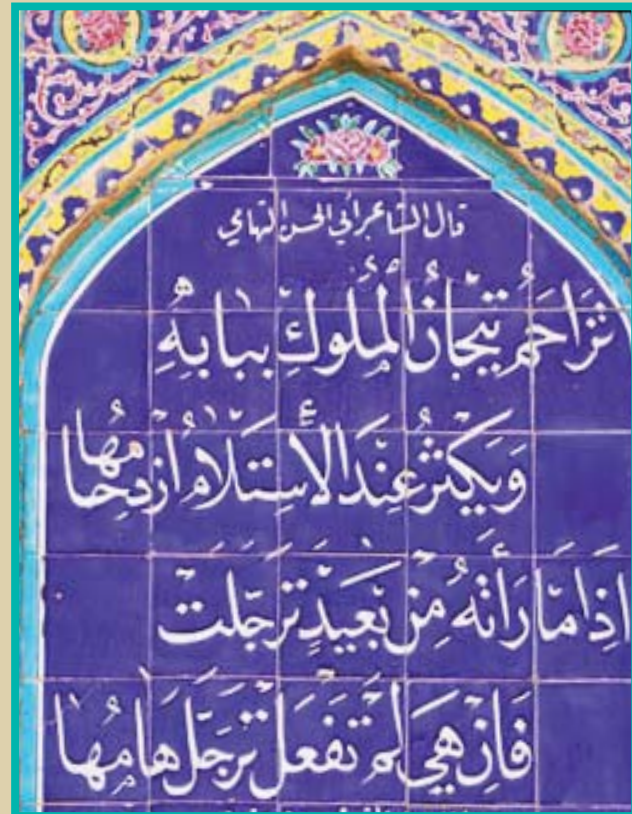 قال الشاعر أبي الحسن التهامي
تَزَاحَمُ تِيجَانُ الْمُلُوكِ بِبَابِهِ
وَيَكْثُرُ عِنْدَ الأِسْتِلَامُ ازْدِحَامُهَا
اِذَا مَا رَأَتْهُ مِنْ بَعِيْدٍ تَرَجَّلَتْ
فَاِنْ هِيَ لَمْ تَفْعَلْ تَرَجَّلَ هَامُهَا